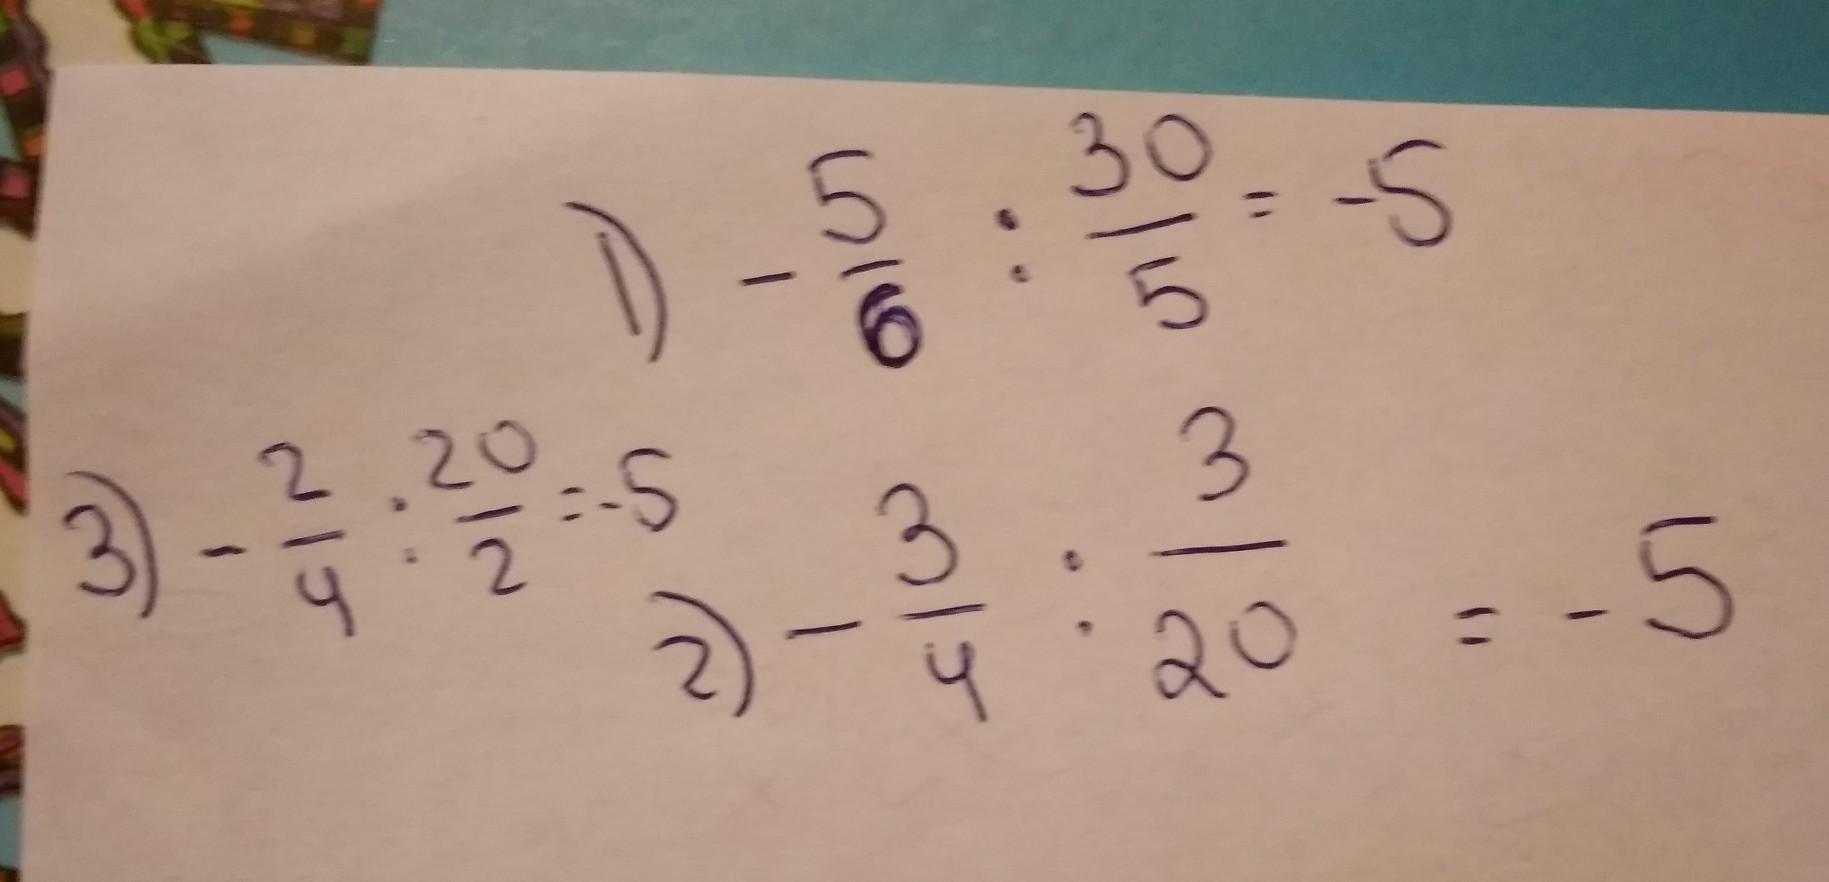 1) - 5/6 : 30/5 = -5
3) - 2/4 : 20/2 = -5
2) - 3/4 : 3/20 = -5